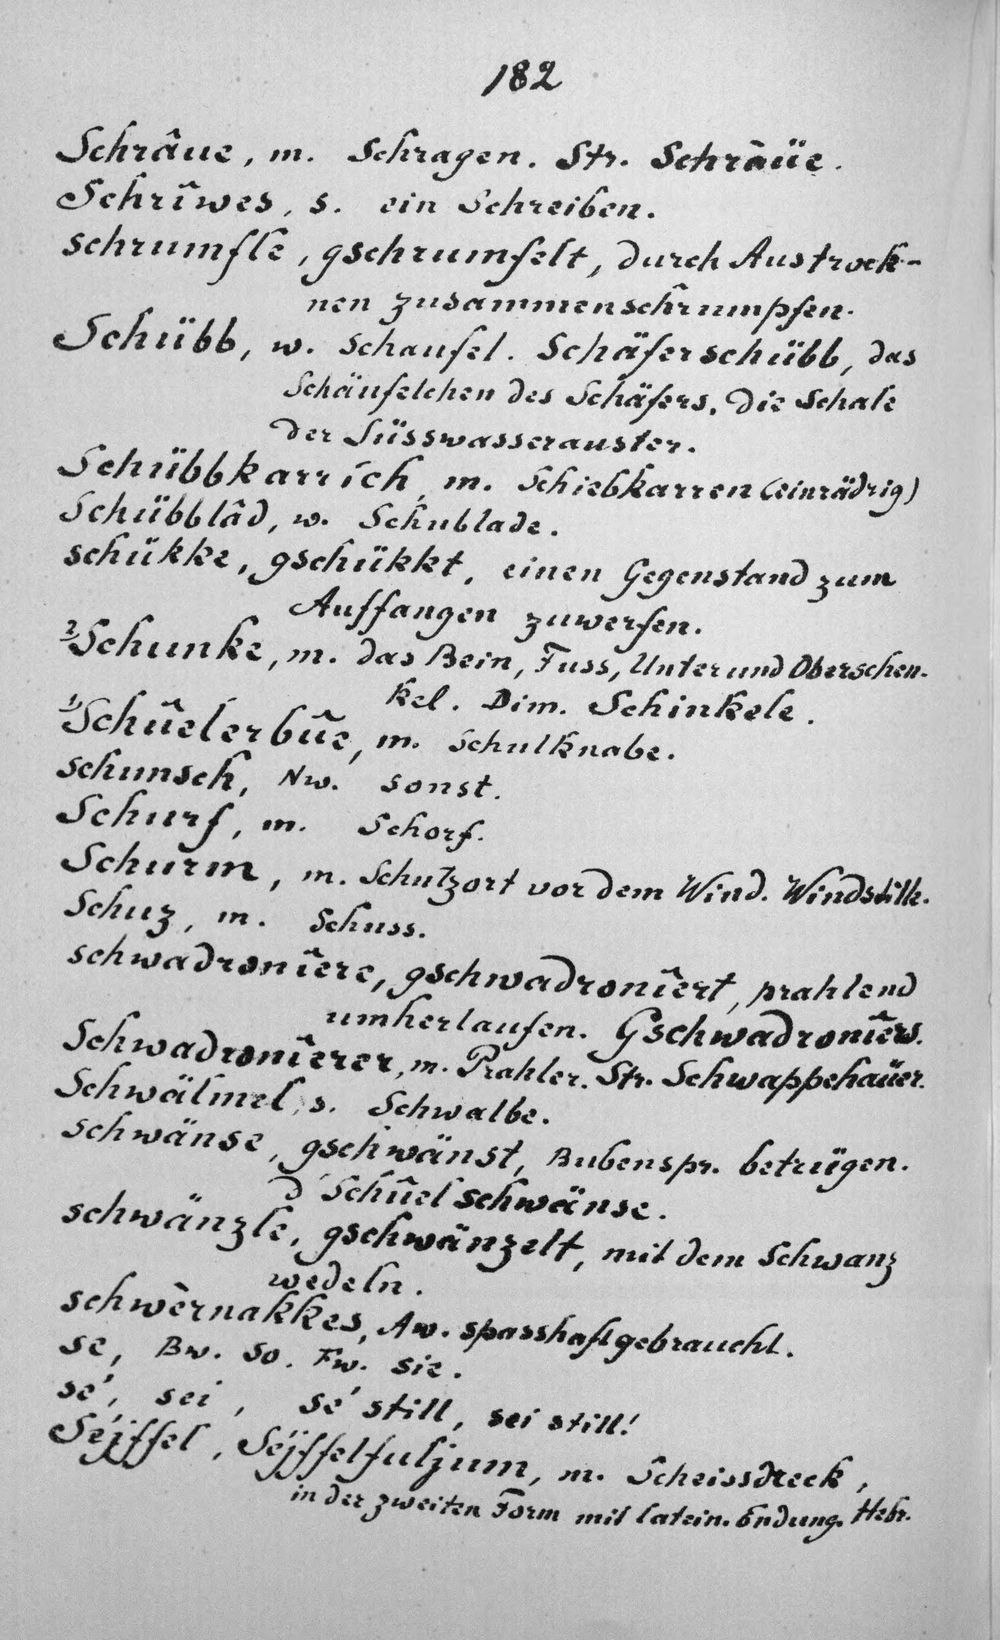 182
Schrâue, m. Schragen. Str. Schràüe.
Schrîwes, s. ein Schreiben.
schrumfle, gschrumfelt, durch Austrock-
nen zusammenschrumpfen.
Schübb, w. Schaufel. Schäferschübb, das
Schäufelchen des Schäfers. Die Schale
der Süsswasserauster.
Schübbkarrich, m. Schiebkarren (einrädrig)
Schübblâd, w. Schublade.
schükke, gschükkt, einen Gegenstand zum
Auffangen zuwerfen.
2) Schunke, m. das Bein, Fuss, Unter und Oberschen-
kel. Dim. Schinkele.
1) Schûelerbûe, m. Schulknabe.
schunsch, Nw. sonst.
Schurf, m. Schorf.
Schurm, m. Schutzort vor dem Wind. Windstille.
Schuz, m. Schuss.
schwadronîere, gschwadronîert, prahlend
umherlaufen. Gschwadronîers.
Schwadronîerer, m. Prahler. Str. Schwappehaüer.
Schwälmel, s. Schwalbe.
schwänse, gschwänst, Bubenspr. betrügen.
d' Schûel schwänse.
schwänzle, gschwänzelt, mit dem Schwanz
wedeln.
schwèrnakkes, Aw. spasshaft gebraucht.
se, Bw. so. Fw. sie.
sé, sei, sé still, sei still!
Séjffel, Séjffelfuljum, m. Scheissdreck,
in der zweiten Form mit latein. Endung. Hebr.